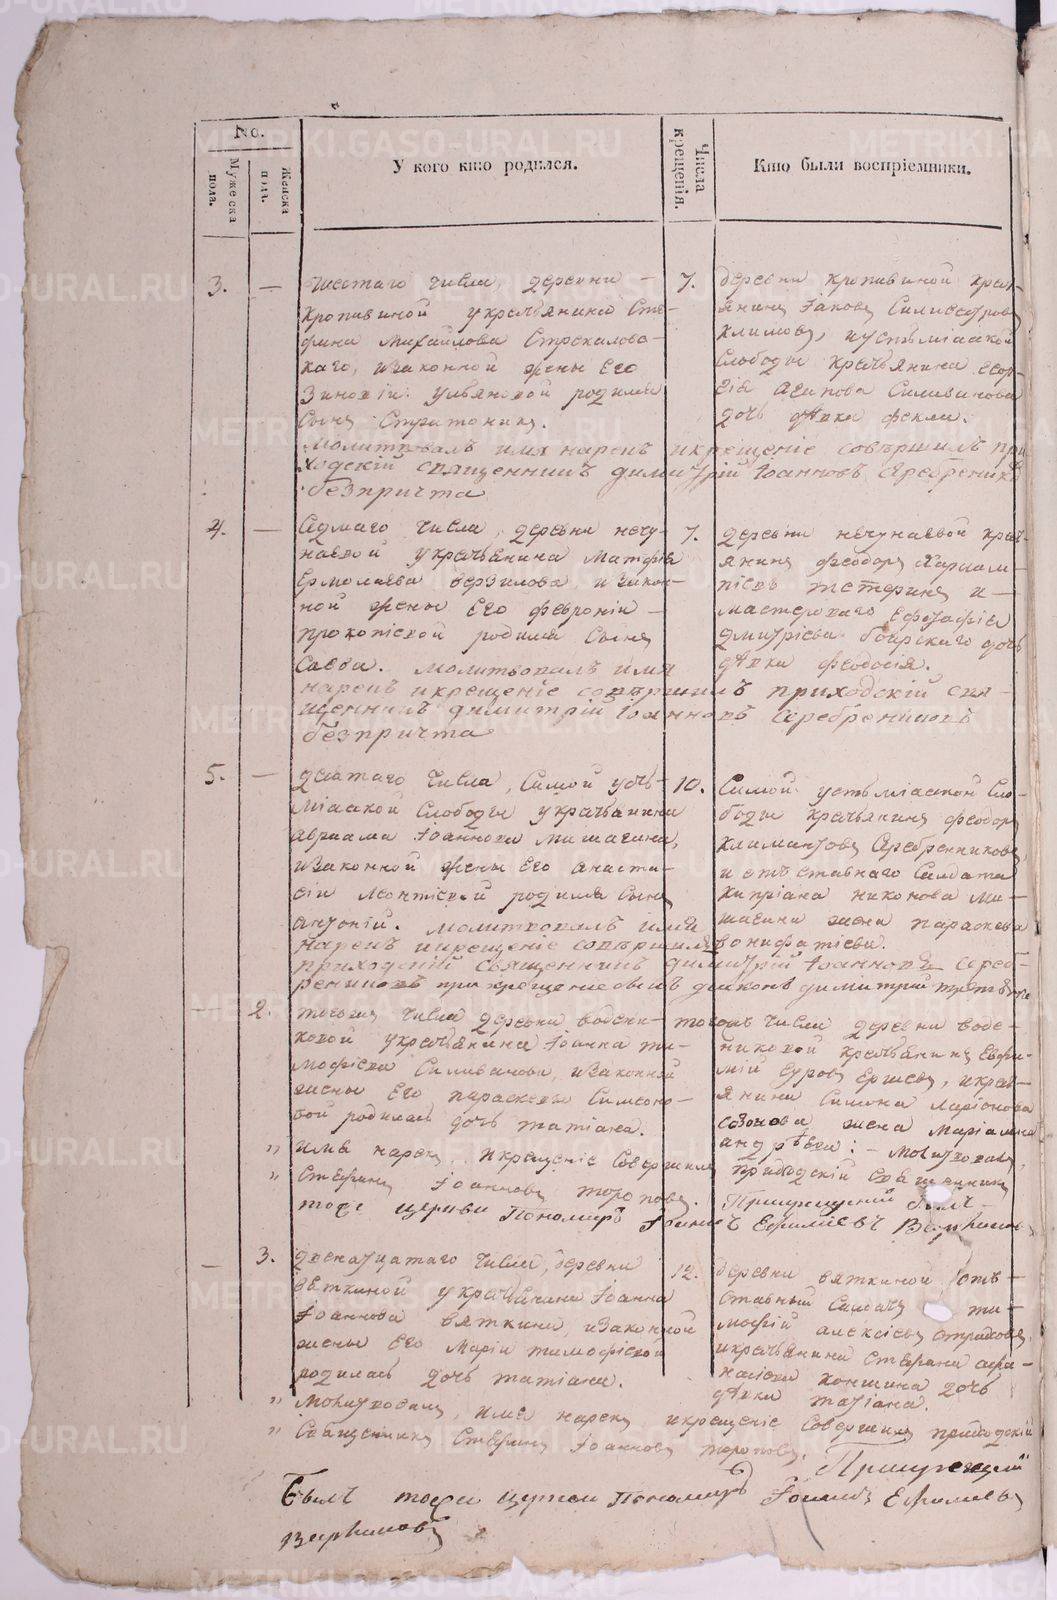 No.
Мужеска пола.
Женска пола.
У кого кто родился.
Числа крещенія.
Кто были воспріемники.
3. — шестаго числа, деревни —
Кропивиной у крестьянина Сте-
фана Михайлова Стрекалова-
каго, и законной жены Его
Зиновіи Ульяновой родился
Сынъ Стратоникъ.
7. деревни Кропивиной крест-
янинъ Іаковъ Силивестровъ
Климовъ, и усть міаской
Слободы крестьянина Геор-
гія Агипова Силиванова
дочь дѣвка Фекла.
Молитвовалъ имя нарекъ и крещеніе совѣршилъ при-
ходскій священникъ Димитрій Іоанновъ Серебрениковъ
безпричта
4. — Седмаго числа, деревни Нечу-
наевой у крестьянина Матфѣя
Ермолаева Верзилова и закон-
ной жены Его Февроніи —
Прокопіевой родился Сынъ
Савва. Молитвовалъ имя
7. деревни Нечунаевой крест-
янинъ Феодоръ Харлам-
піевъ Тетеринъ и —
мастероваго Ефстафія
Дмитріева Боярскаго дочь
дѣвка Феодосія.
нарекъ и крещеніе совѣршилъ приходскій свя-
щенникъ Димитрій Іоанновъ Серебрениковъ
безпричта
5. — девятаго числа, Самой усть-
міаской Слободы у крестьянина
Авраама Іоаннова Мишагина,
и законной жены Его Анаста-
сіи Леонтіевой родился Сынъ
Антоній. Молитвовалъ имя
10. Самой усть міаской Сло-
боды крестьянинъ Феодоръ
Климянтовъ Серебренниковъ,
и отъставнаго Салдата
Кипріана Никонова Ми-
шагина жена Параскева
Вонифатіева.
нарекъ и крещеніе совѣршилъ
приходскій священникъ Димитрій Іоанновъ Сереб-
рениковъ при крещеніе былъ діаконъ Димитрій
— 2. тогожъ числа деревни Воден-
ковой у крестьянина Іоанна Ти-
мофіева Силиванова, и законной
жены Его Параскевы Симеоно-
вой родилась дочь Татіана.
тогожъ числа деревни Воде-
никовой крестьянинъ Ефи-
мій Ершевъ, и крест-
янина Симона Ларіонова
Созонова жена Маріамна
Андрѣева: — Молитвовалъ,
" имя нарекъ, и крещеніе Совершилъ приходскій священникъ
" Стефанъ Іоанновъ Тороповъ. При крещеніи былъ
тоже церкви Пономарь Іоаннъ Ефимьевъ
— 3. двенатцатаго числа, деревни
Вяткиной у крестьянина Іоанна
Іоаннова Вяткина, и законной
жены Его Маріи Тимофіевой
родилась дочь Татіана.
12. деревни Вяткиной отъ-
ставный Салдатъ Ти-
мофій Алексіевъ
и крестьянина Стефана Афа-
насіева Коншина дочь
дѣвка Татіана.
" Молитвовалъ, имя нарекъ и крещеніе Совершилъ приходскій
" Священникъ Стефанъ Іоанновъ Тороповъ. При крещеніи
былъ тоже церкви Пономарь Іоаннъ Ефимьевъ